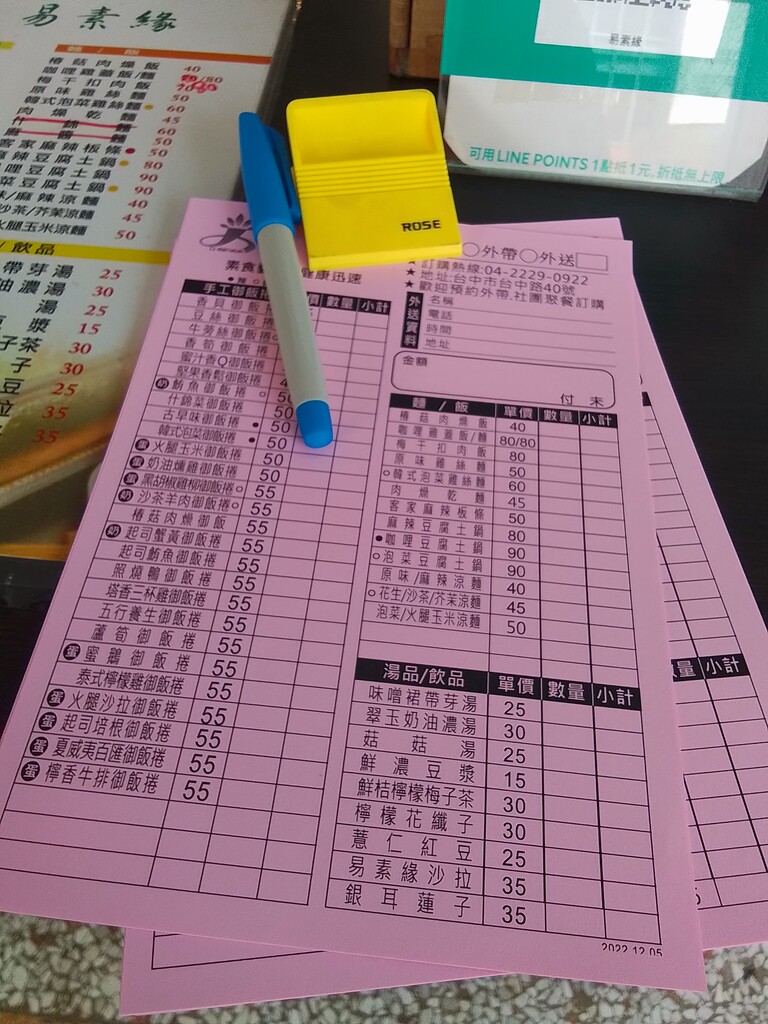 易素緣
麵/飯
椿菇肉燥飯 40
咖哩雞蓋飯/麵 /80
梅干扣肉飯
原味雞絲麵 50
韓式泡菜雞絲麵 60
肉燥乾麵 45
什錦麵 60
客家麻辣板條 50
麻辣豆腐土鍋 80
哩豆腐土鍋 90
菜豆腐土鍋 90
味/麻辣涼麵 40
沙茶/芥茉涼麵 45
火腿玉米涼麵 50
/飲品
帶芽湯 25
油濃湯 30
湯 25
漿 15
子茶 30
子 30
豆 25
拉 35
35
易素緣
可用 LINE POINTS 1點抵1元,折抵無上限
ROSE
素食 健康迅速
外帶 外送
★訂購熱線:04-2229-0922
★地址:台中市台中路40號
★歡迎預約外帶.社團聚餐訂購
外送資料
名稱
電話
時間
地址
金額
付 未
手工御飯捲 價 數量 小計
香貝御飯
豆絲御飯
牛蒡絲御飯捲
香筍御飯捲
蜜汁香Q御飯捲
堅果香鬆御飯捲
奶 鮪魚御飯捲
什錦菜御飯捲 50
古早味御飯捲 50
韓式泡菜御飯捲 50
蛋 火腿玉米御飯捲 50
蛋 奶油燻雞御飯捲 50
蛋 黑胡椒雞柳御飯捲 55
奶 沙茶羊肉御飯捲 55
椿菇肉燥御飯 55
奶 起司蟹黃御飯捲 55
起司鮪魚御飯捲 55
照燒鴨御飯捲 55
塔香三杯雞御飯捲 55
五行養生御飯捲 55
蘆筍御飯捲 55
蛋 蜜鵝御飯捲 55
泰式檸檬雞御飯捲 55
蛋 火腿沙拉御飯捲 55
蛋 起司培根御飯捲 55
蛋 夏威夷百匯御飯捲 55
蛋 檸香牛排御飯捲 55
麵/飯 單價 數量 小計
椿菇肉燥飯 40
咖哩雞蓋飯/麵 80/80
梅干扣肉飯 80
原味雞絲麵 50
韓式泡菜雞絲麵 60
肉燥乾麵 45
客家麻辣板條 50
麻辣豆腐土鍋 80
咖哩豆腐土鍋 90
泡菜豆腐土鍋 90
原味/麻辣涼麵 40
花生/沙茶/芥茉涼麵 45
泡菜/火腿玉米涼麵 50
湯品/飲品 單價 數量 小計
味噌裙帶芽湯 25
翠玉奶油濃湯 30
菇菇湯 25
鮮濃豆漿 15
鮮桔檸檬梅子茶 30
檸檬花纖子 30
薏仁紅豆 25
易素緣沙拉 35
銀耳蓮子 35
2022.12.05
量 小計